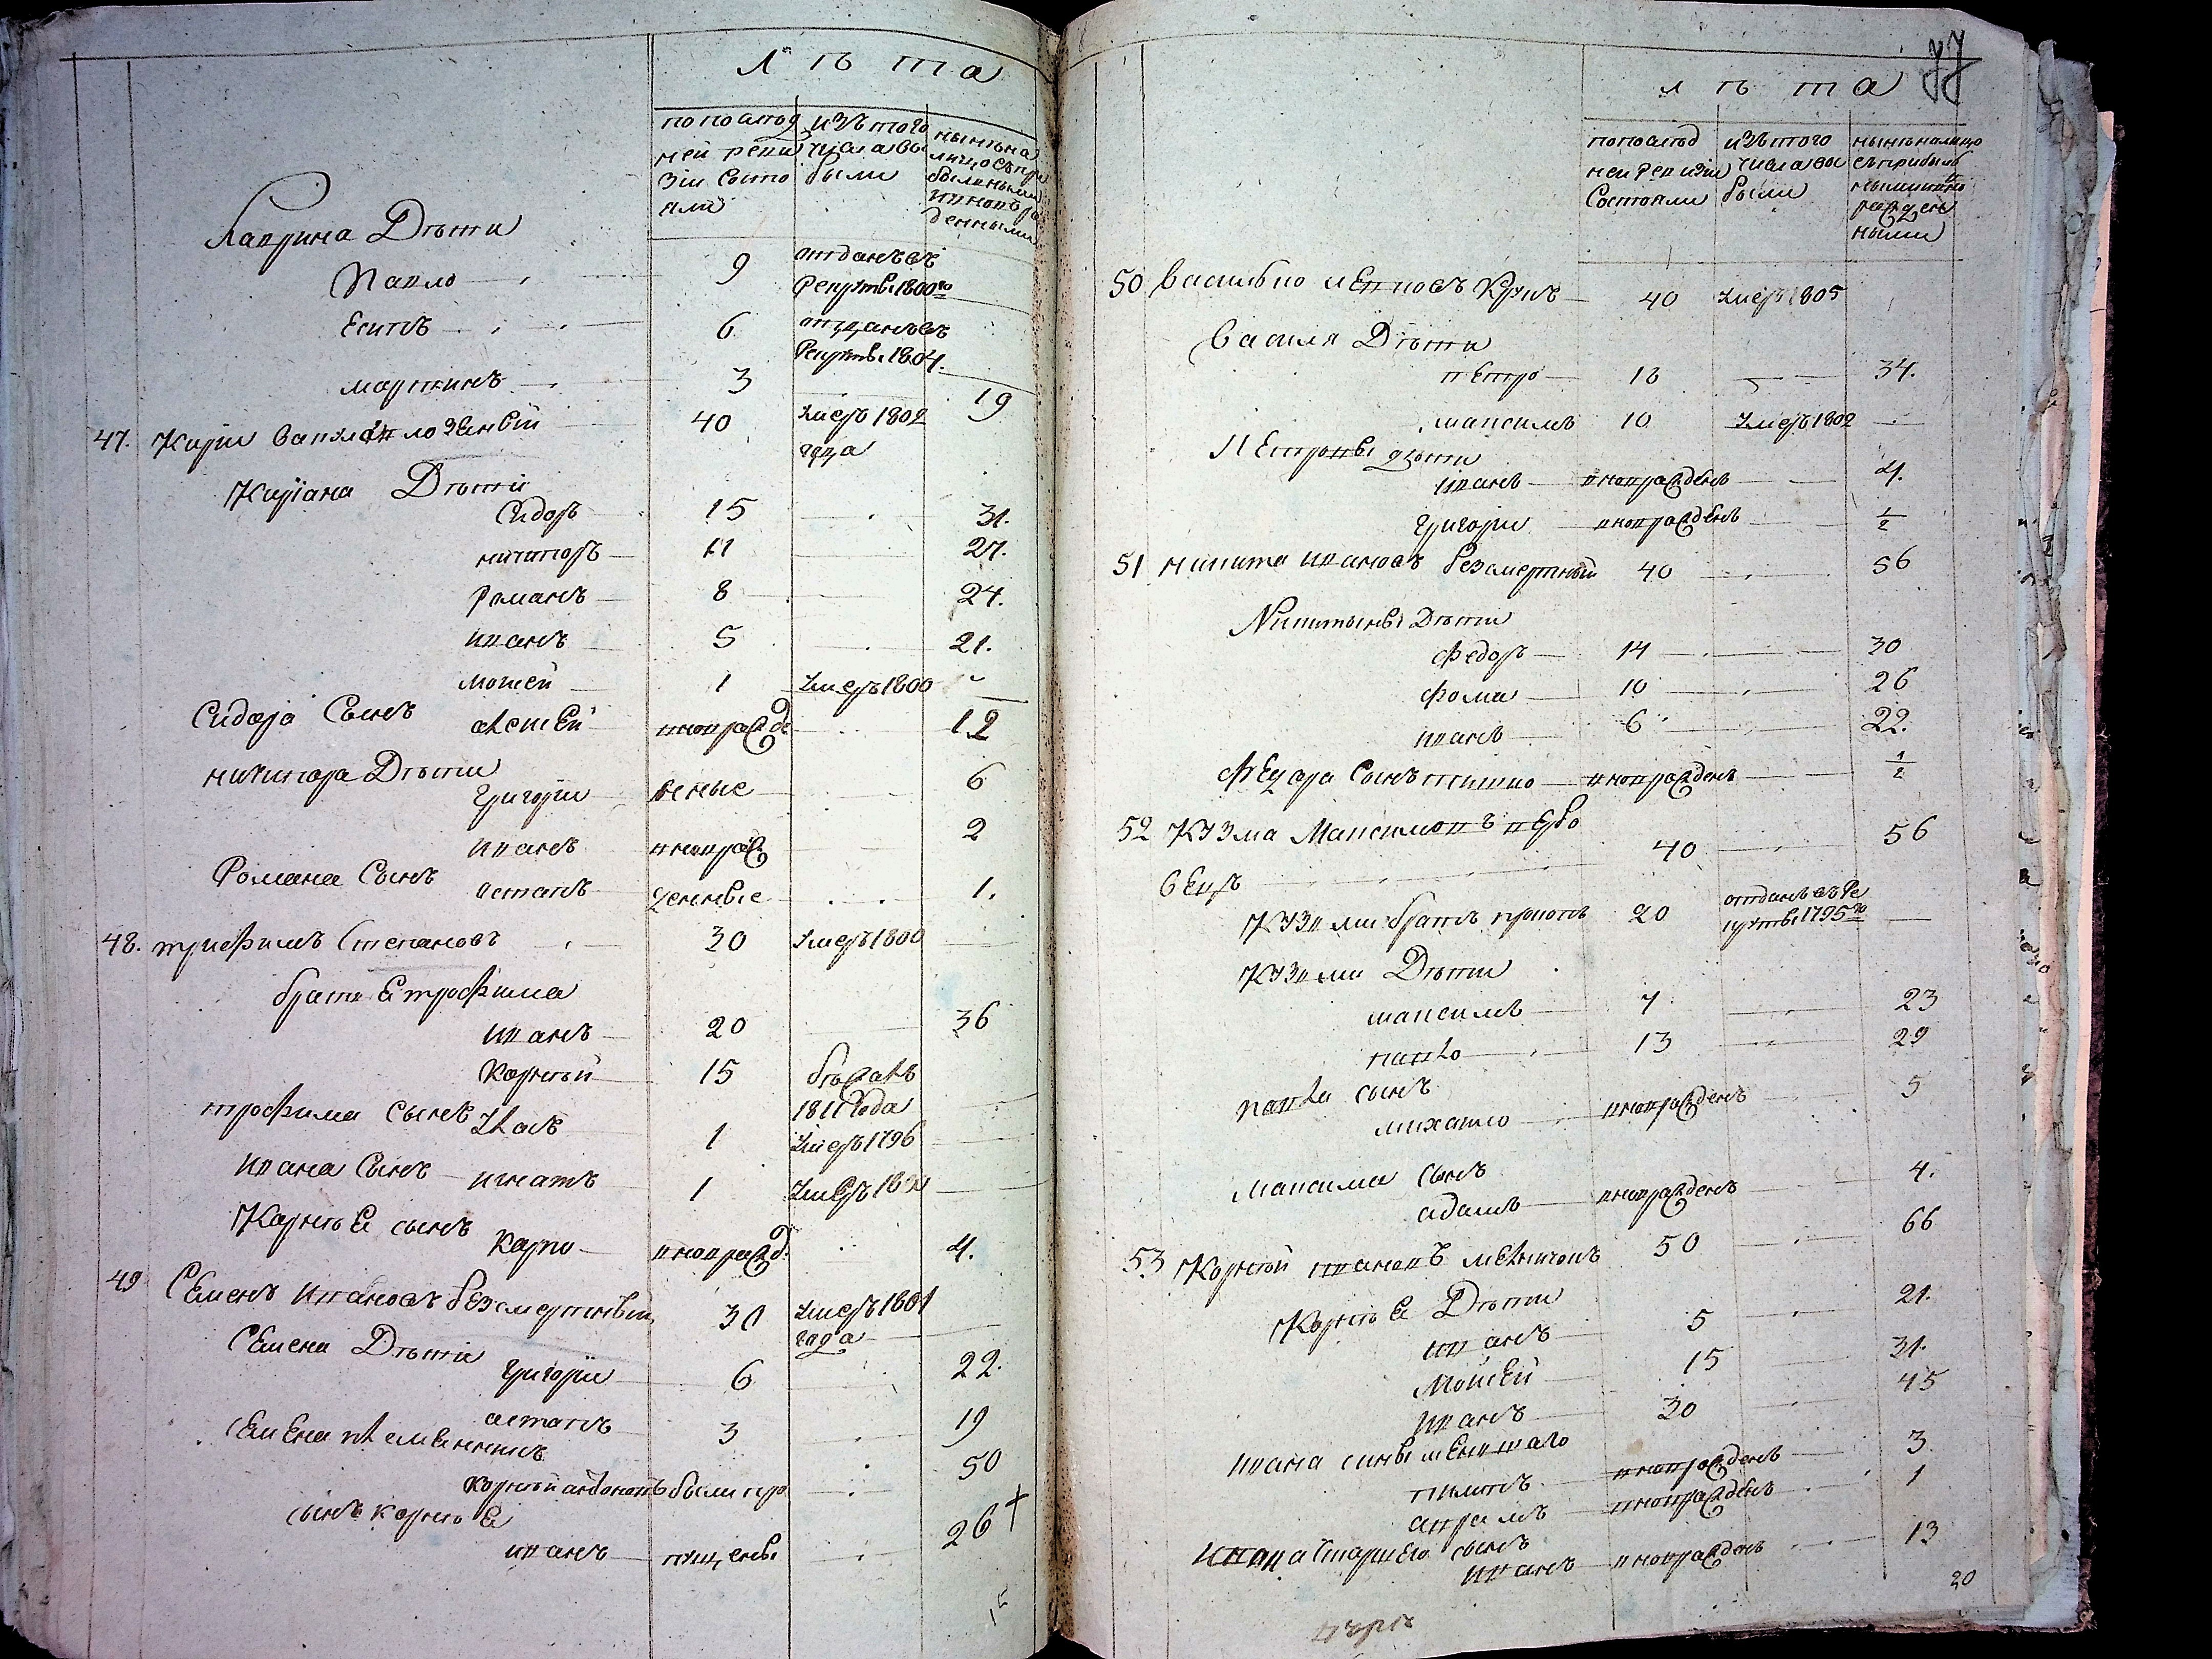 лѣта
по послѣд
ней реви
зіи состо
яли
изъ того
числа вы
были
нынѣ на
лицо съ при
былыми
и новоро
жденными
Лаврина Дѣти
Павло 9 отданъ въ
рекруты 1800го
Есипъ 6 отданъ въ
рекруты 1804.
Мартинъ 3 19
47. Кирил 40 умеръ 1802
года
Киріана Дѣти
Сидоръ 15 31.
Ничипоръ 11 27.
Романъ 8 24.
Иванъ 5 21.
Мойсей 1 умеръ 1800
Сидора Сынъ Алексей вновьрожде 12
Ничипора Дѣти
Григори нные 6
Иванъ вновьрож 2
Романа Сынъ Остапъ денные 1.
48. Трифимъ Степановъ 30 умеръ 1800
братя Етрофима
Иванъ 20 36
Корнѣй 15 бѣжалъ
1811 года
Трофима Сынъ Улас 1 умеръ 1796
Ивана Сынъ Игнатъ 1 умеръ
Корнѣя сынъ Карпо вноврожд. 4.
49 Семенъ Ивановъ безсмертный 30 умеръ 1801
года
Семена Дѣти
Григорій 6 22.
Остапъ 3 19
Семена племенникъ
Корнѣй Антоновъ были про 50
сынъ Корнѣя
Иванъ пущены 26 +
15
77
лѣта
по послѣд
ней ревизіи
Состояли
изъ того
числа вы
были
нынѣ налицо
съ прибыль
ными и ново
рожден
ными
50 Василь 40 умеръ 1805
Василя Дѣти
Петро 18 34.
Максимъ 10 умеръ 1802
Петровы дѣти
Иванъ вноврожденъ 4.
Григори вноврожденъ 1/2
51 Никита Ивановъ безсмертный 40 56
Никитыны Дѣти
Федоръ 14 30
Фома 10 26
Иванъ 6 22.
Федора Сынъ Тишко вноврожденъ 1/2
52 Кузма Максимовъ
40 56
Кузми братъ Прокопъ 20 отданъ въ ре
круты 1795го
Кузми Дѣти
Максимъ 7 23
Павло 13 29
Павла сынъ
Михайло вноврожденъ 5
Максима сынъ
Адамъ вноврожденъ 4.
53 Корнѣй Ивановъ 50 66
Корнѣя Дѣти
Иванъ 5 21.
Мойсей 15 31.
Иванъ 30 45
Ивана сины меншаго
Пилипъ вноврожденъ 3
Аврамъ вноврожденъ 1
Ивана Старшего сынъ
Иванъ вноврожденъ 13
20